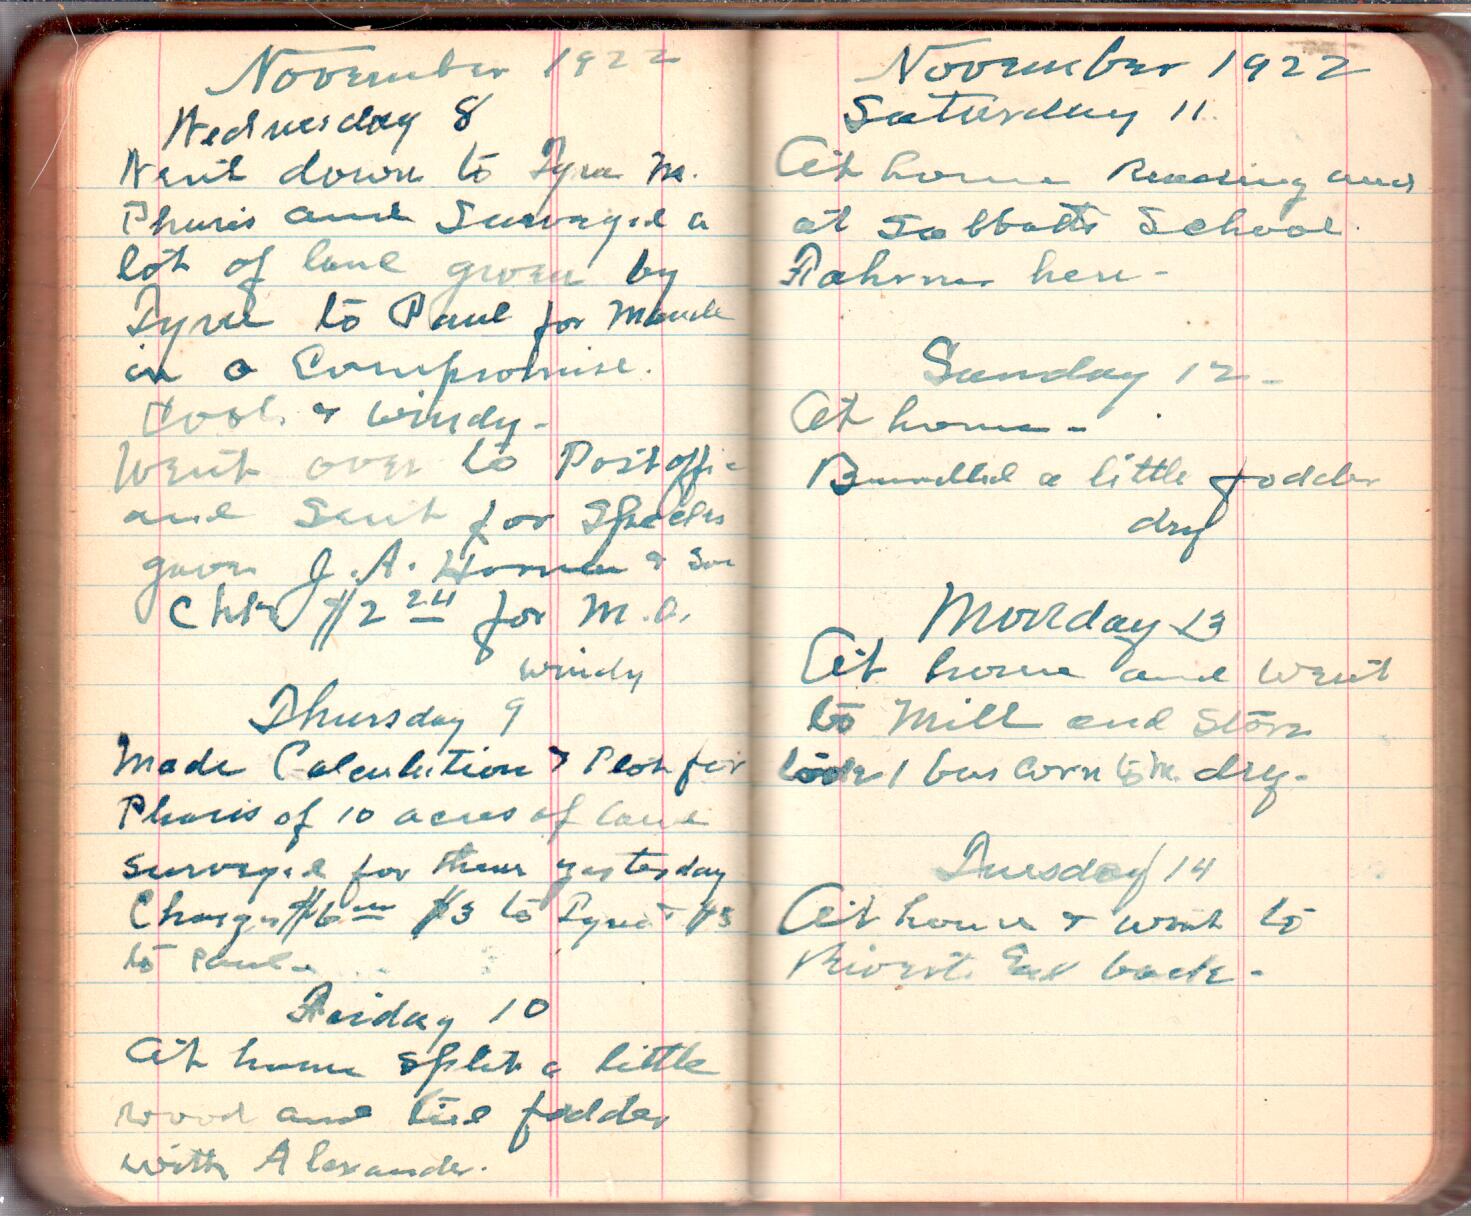 November 1922
Wednesday 8
Went down to Tyra M.
Pharis and Surveyed a
lot of land given by
Tyree to Paul for Maude
in a Compromise.
Cool & windy-
Went over to Post office
and Sent for Specks
gave J. A. & Son
Chk $2 24 for M.O.
windy
Thursday 9
Made Calculation & Plot for
Pharis of 10 acres of land
surveyed for them yesterday
Charges $6 00 $3 to Tyree & $3
to Paul.
Friday 10
At home split a little
wood and tied fodder
with Alexander.
November 1922
Saturday 11.
At home Reading and
at Sabbath School
here-
Sunday 12-
At home-
Bundled a little fodder
dry
Monday 13
At home and Went
to Mill and Store
took 1 bus corn to m. dry-
Tuesday 14
At home & went to
back-